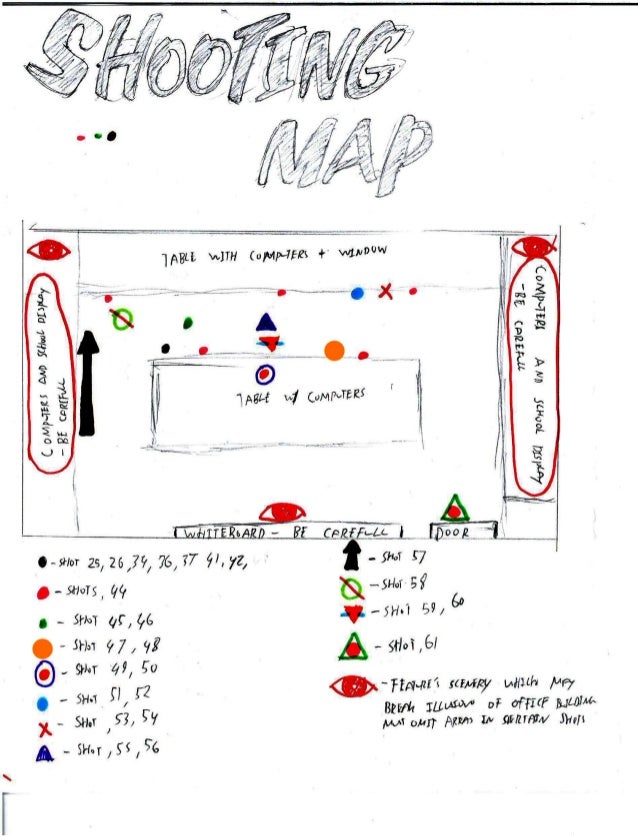 SHOOTING
MAP
TABLE WITH COMPUTERS + WINDOW
COMPUTERS AND SCHOOL DISPLAY
- BE CAREFULL
COMPUTERS AND SCHOOL DISPLAY
- BE CAREFULL
TABLE W/ COMPUTERS
WHITEBOARD - BE CAREFULL
DOOR
- SHOT 25, 26, 34, 36, 37 41, 42,
- SHOTS, 44
- SHOT 45, 46
- SHOT 47, 48
- SHOT 49, 50
- SHOT 51, 52
- SHOT, 53, 54
- SHOT, 55, 56
- SHOT 57
- SHOT 58
- SHOT 59, 60
- SHOT, 61
- FEATURE'S SCENERY WHICH MAY
BREAK ILLUSION OF OFFICE BUILDING
MUST OMIT AREAS IN CERTAIN SHOTS